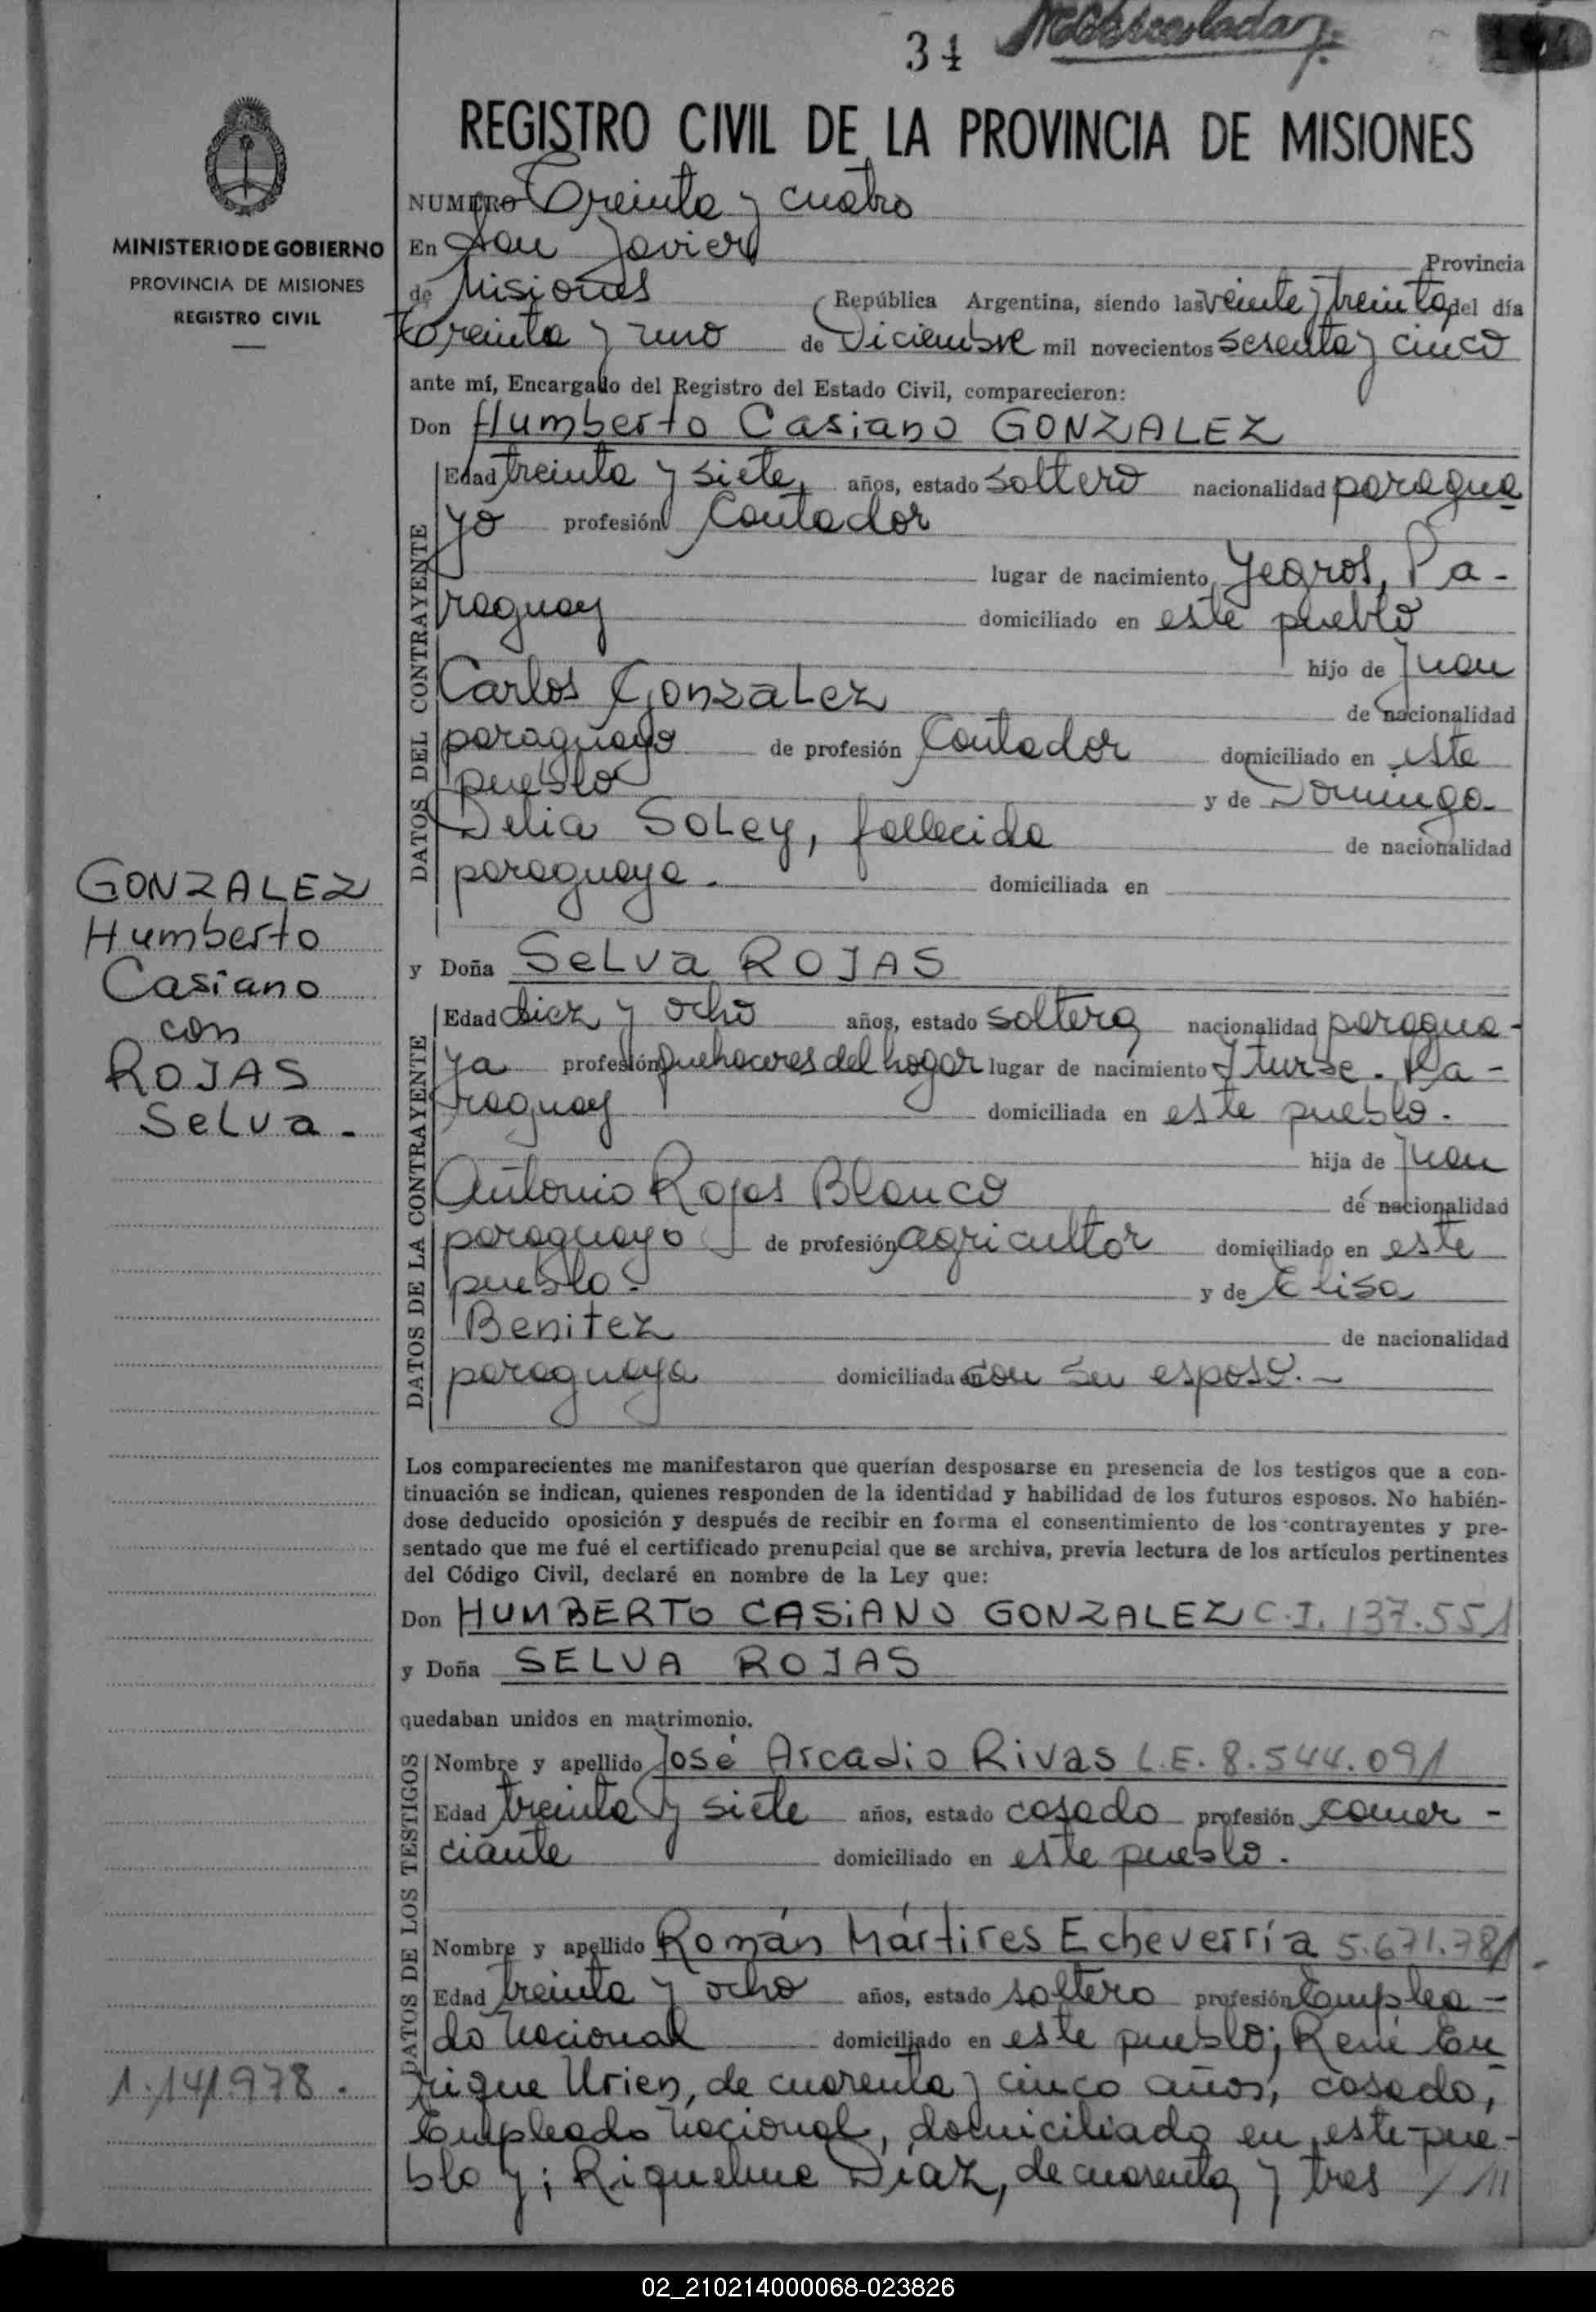 34
REGISTRO CIVIL DE LA PROVINCIA DE MISIONES
MINISTERIO DE GOBIERNO
PROVINCIA DE MISIONES
REGISTRO CIVIL
GONZALEZ
Humberto
Casiano
con
ROJAS
Selva.
1.141.978.
NUMERO Treinta y cuatro
En San Javier Provincia
de Misiones República Argentina, siendo las veinte y treinta del día
treinta y uno de Diciembre mil novecientos sesenta y cinco
ante mí, Encargado del Registro del Estado Civil, comparecieron:
Don Humberto Casiano GONZALEZ
DATOS DEL CONTRAYENTE
Edad treinta y siete, años, estado soltero nacionalidad paragua
yo profesión Contador
lugar de nacimiento Yegros, Pa-
raguay domiciliado en este pueblo
hijo de Juan
Carlos Gonzalez de nacionalidad
paraguayo de profesión Contador domiciliado en este
pueblo y de Dominga
Delia Soley, fallecida de nacionalidad
paraguaya. domiciliada en
y Doña Selva ROJAS
DATOS DE LA CONTRAYENTE
Edad diez y ocho años, estado soltera nacionalidad paragua-
ya profesión quehaceres del hogar lugar de nacimiento Iturbe. Pa-
raguay domiciliada en este pueblo.
hija de Juan
Antonio Rojas Blanco de nacionalidad
paraguayo de profesión agricultor domiciliado en este
pueblo. y de Elisa
Benitez de nacionalidad
paraguaya domiciliada en con su esposo.-
Los comparecientes me manifestaron que querían desposarse en presencia de los testigos que a con-
tinuación se indican, quienes responden de la identidad y habilidad de los futuros esposos. No habién-
dose deducido oposición y después de recibir en forma el consentimiento de los contrayentes y pre-
sentado que me fué el certificado prenupcial que se archiva, previa lectura de los artículos pertinentes
del Código Civil, declaré en nombre de la Ley que:
Don HUMBERTO CASIANO GONZALEZ C.I. 137.551
y Doña SELVA ROJAS
quedaban unidos en matrimonio.
DATOS DE LOS TESTIGOS
Nombre y apellido José Arcadio Rivas L.E. 8.544.091
Edad treinta y siete años, estado casado profesión comer-
ciante domiciliado en este pueblo.
Nombre y apellido Román Mártires Echeverría 5.671.781
Edad treinta y ocho años, estado soltero profesión Emplea-
do Nacional domiciliado en este pueblo; René En
rique Urien, de cuarenta y cinco años, casado,
Empleado Nacional, domiciliado en este pue-
blo y; Riquelme Díaz, de cuarenta y tres / ///
02_210214000068-023826